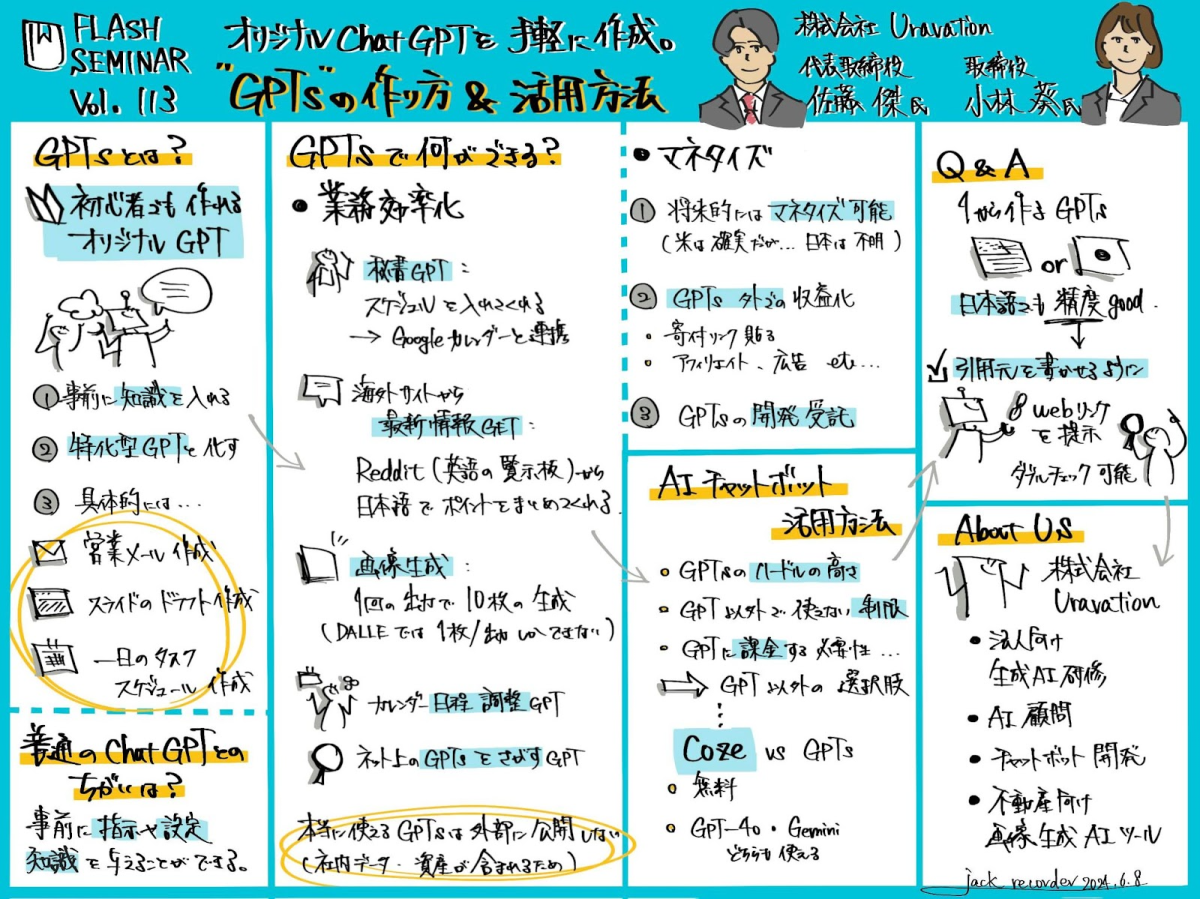 FLASH
SEMINAR
Vol. 113
オリジナル Chat GPTを 手軽に 作成。
"GPTs"の 作り方 & 活用方法
株式会社 Uravation
代表取締役
佐藤 傑氏
取締役
小林 葵氏
GPTsとは?
初心者でも 作れる
オリジナル GPT
① 事前に 知識を 入れる
② 特化型GPTと化す
③ 具体的には…
営業メール 作成
スライドの ドラフト作成
一日の タスク
スケジュール 作成
普通の Chat GPTとの
ちがいは?
事前に 指示や設定
知識を与えることができる。
GPTsで 何が できる?
• 業務効率化
秘書GPT:
スケジュールを入れてくれる
→ Googleカレンダーと連携
海外サイトから
最新情報GET:
Reddit(英語の 掲示板)から
日本語で ポイントを まとめてくれる.
画像生成:
1回の 出力で 10枚の 生成
(DALLEでは 1枚/出力 しかできない)
カレンダー 日程 調整 GPT
ネット上の GPTsを さがす GPT
本当に使える GPTsは 外部に 公開しない
(社内データ・資産が含まれるため)
• マネタイズ
① 将来的には マネタイズ可能
(米は 確実だが… 日本は 不明)
② GPTs 外での 収益化
・寄付リンク 貼る
・アフィリエイト、広告 etc…
③ GPTsの 開発 受託
AI チャットボット
活用方法
• GPTsの ハードルの高さ
• GPT以外で 使えない 制限
• GPTに 課金する 必要性…
⇨ GPT以外の 選択肢
Coze vs GPTs
• 無料
• GPT-4o・Gemini
どちらも 使える
Q & A
1から作る GPTs
or
日本語でも 精度 good.
引用元を書かせるように
webリンク
を 提示
ダブルチェック 可能
About US
株式会社
Uravation
• 法人向け
生成AI研修
• AI 顧問
• チャットボット 開発
• 不動産向け
画像生成AIツール
jack recorder 2024.6.8